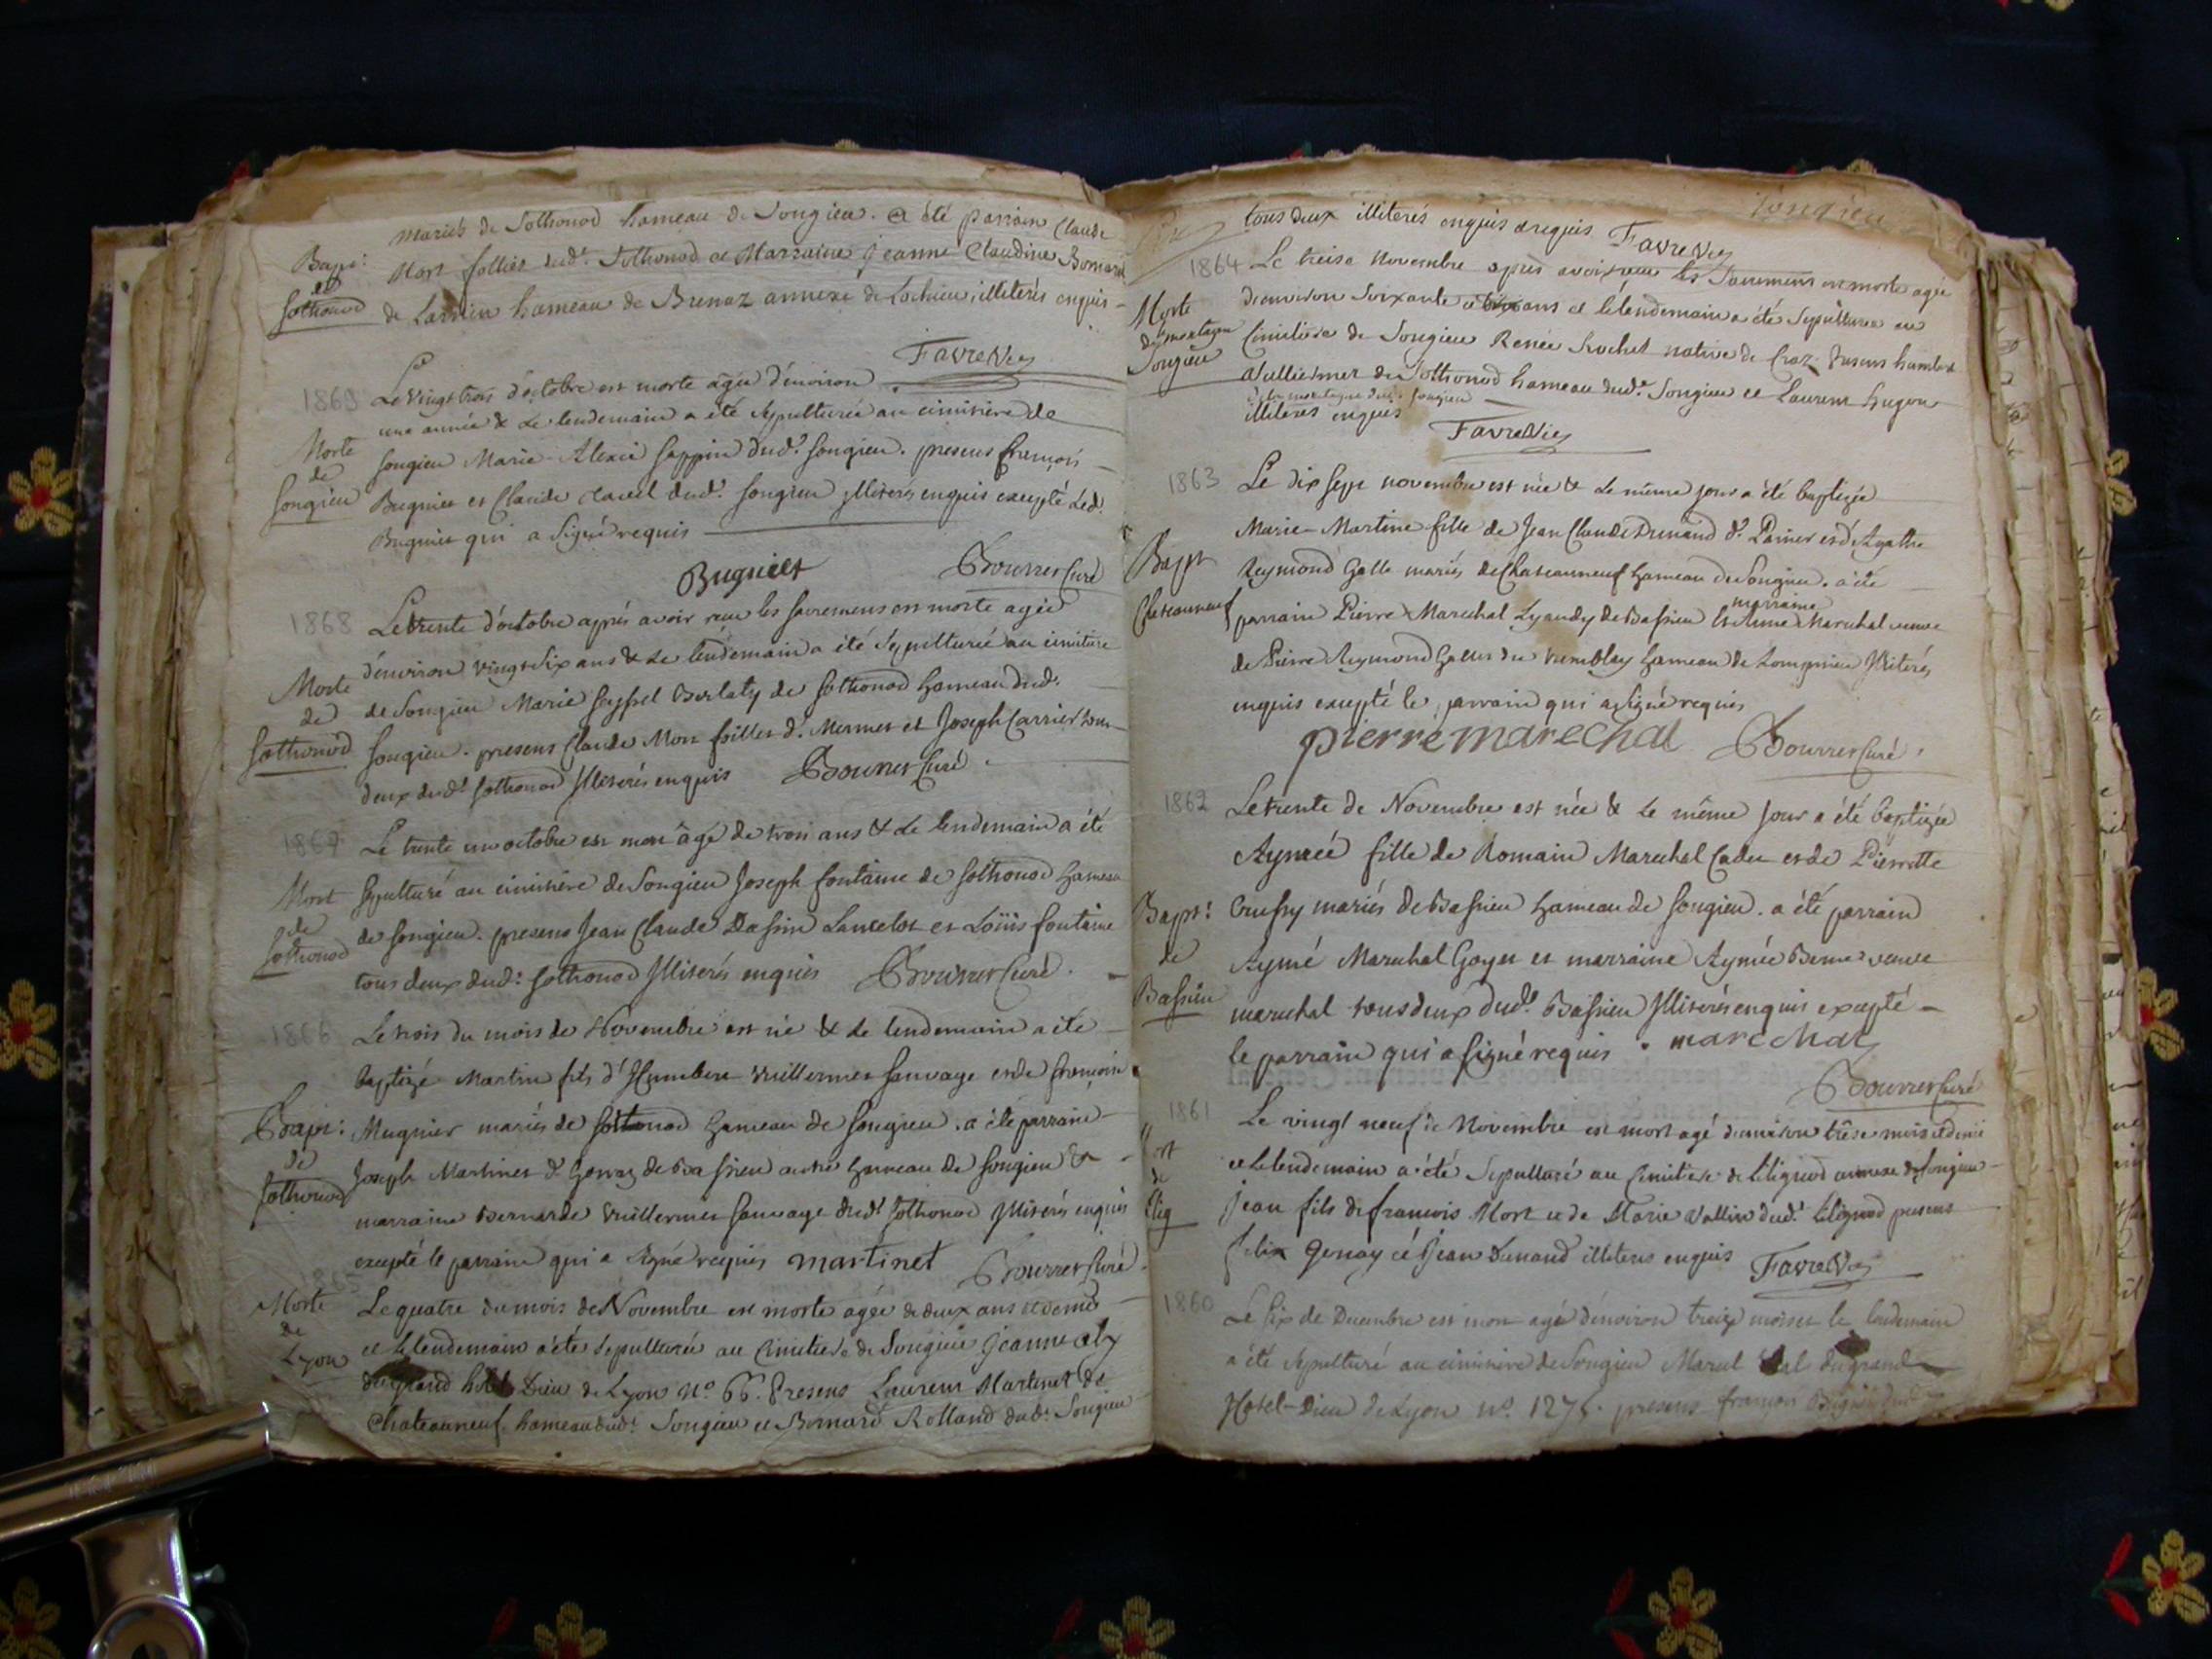 mariés de Sothonod hameau de Songieu. a été parrain Claude
Bapt: Mort folliet dud.t Sothonod et Marraine Jeanne Claudine Bornard
de
Sothonod de hameau de Brenaz annexe de Lochieu, illiterés enquis
Favre Vic
1869 Le vingt trois d'octobre est morte agée d'environ
une année & le lendemain a été sepulturée au cimitière de
Morte Songieu Marie Alexie Sappin dud.t Songieu. presens françois
de
Songieu Bugniet et Claude Clavel dud.t Songieu illiterés enquis excepté led.
Bugniet qui a signé requis
Bugniet Bourrer Curé
1868 Le trente d'octobre après avoir reçu les sacremens est morte agée
d'environ vingt six ans & le lendemain a été sepulturée au cimitière
Morte de Songieu Marie Seyssel Berlaty de Sothonod hameau dud.
de
Sothonod Songieu. presens Claude Mort foillet d.t Mermet et Joseph Carrier tous
deux dud.t Sothonod Illiterés enquis Bourrer Curé
1867 Le trente un octobre est mort âgé de trois ans & le lendemain a été
Mort sepulturé au cimitière de Songieu Joseph fontaine de Sothonod hameau
de
Sothonod de Songieu. presens Jean Claude Dassin Lancelot et Loüis fontaine
tous deux dud.t Sothonod Illiterés enquis Bourrer Curé.
1866 Le trois du mois de Novembre est né & le lendemain a été
baptizé Martin fils d'Humbert Vuillermet Sauvage et de françoise
Bapt: Mugnier mariés de Sothonod hameau de Songieu. a été parrain
de
Sothonod Joseph Martinet d.t de Bassieu autre hameau de Songieu &
marraine Bernarde Vuillermet Sauvage dud.t Sothonod Illiterés enquis
excepté le parrain qui a signé requis martinet Bourrer Curé.
1865
Morte Le quatre du mois de Novembre est morte agée de deux ans et demi
de
Lyon et le lendemain a été sepulturée au Cimitiere de Songieu Jeanne
du grand hôtel Dieu de Lyon n.o 66. Presens Laurent Martinet de
Chateauneuf hameau dud.t Songieu et Bernard Rolland dud.t Songieu
Songieu
tous deux illiterés enquis et requis Favre Vic
1864 Le treise Novembre après avoir reçu les Sacremens est morte agée
Morte d'environ soixante et dix ans et le lendemain a été sepulturée au
de la montagne
Songieu Cimitière de Songieu Renée Rochet native de Craz presens humbert
Vulliermet de Sothonod hameau dud.t Songieu et Laurent hugon
de la montagne dud.t Songieu
illiterés enquis
Favre Vic
1863 Le dix sept novembre est née & le même jour a été baptizée
Marie-Martine fille de Jean Claude Dunand d.t Painer et d'Agathe
Bapt Reymond Galle mariés de Chateauneuf hameau de Songieu. a été
marraine
Chateauneuf parrain Pierre Marechal Lyaudy de Bassieu & Aimé Marechal veuve
de Pierre Reymond Galle du tremblay hameau de Illiterés
enquis excepté le parrain qui a signé requis
pierre marechal Bourrer Curé.
1862 Le trente de Novembre est née & le même jour a été baptizée
Aymée fille de Romain Marechal Cadet et de Pierrette
Bapt: mariés de Bassieu hameau de Songieu. a été parrain
de Aymé Marechal Goyet et marraine Aymée veuve
Bassieu marechal tous deux dud.t Bassieu Illiterés enquis excepté
le parrain qui a signé requis. marechal
Bourrer Curé
1861 Le vingt neuf de Novembre est mort agé d'environ trêse mois et demi
Mort
de et le lendemain a été sepulturé au Cimitiere de Lilignod annexe de Songieu
Lilig jean fils de françois Mort et de Marie Vallin dud.t Lilignod presens
felix Genay et Jean Dunand illiterés enquis Favre Vic
1860 Le six de Decembre est mort agé d'environ treize mois et le lendemain
a été sepulturé au cimitière de Songieu Marcel du grand
Hotel-Dieu de Lyon n.o 1275. presens françois Bugniet dud.t